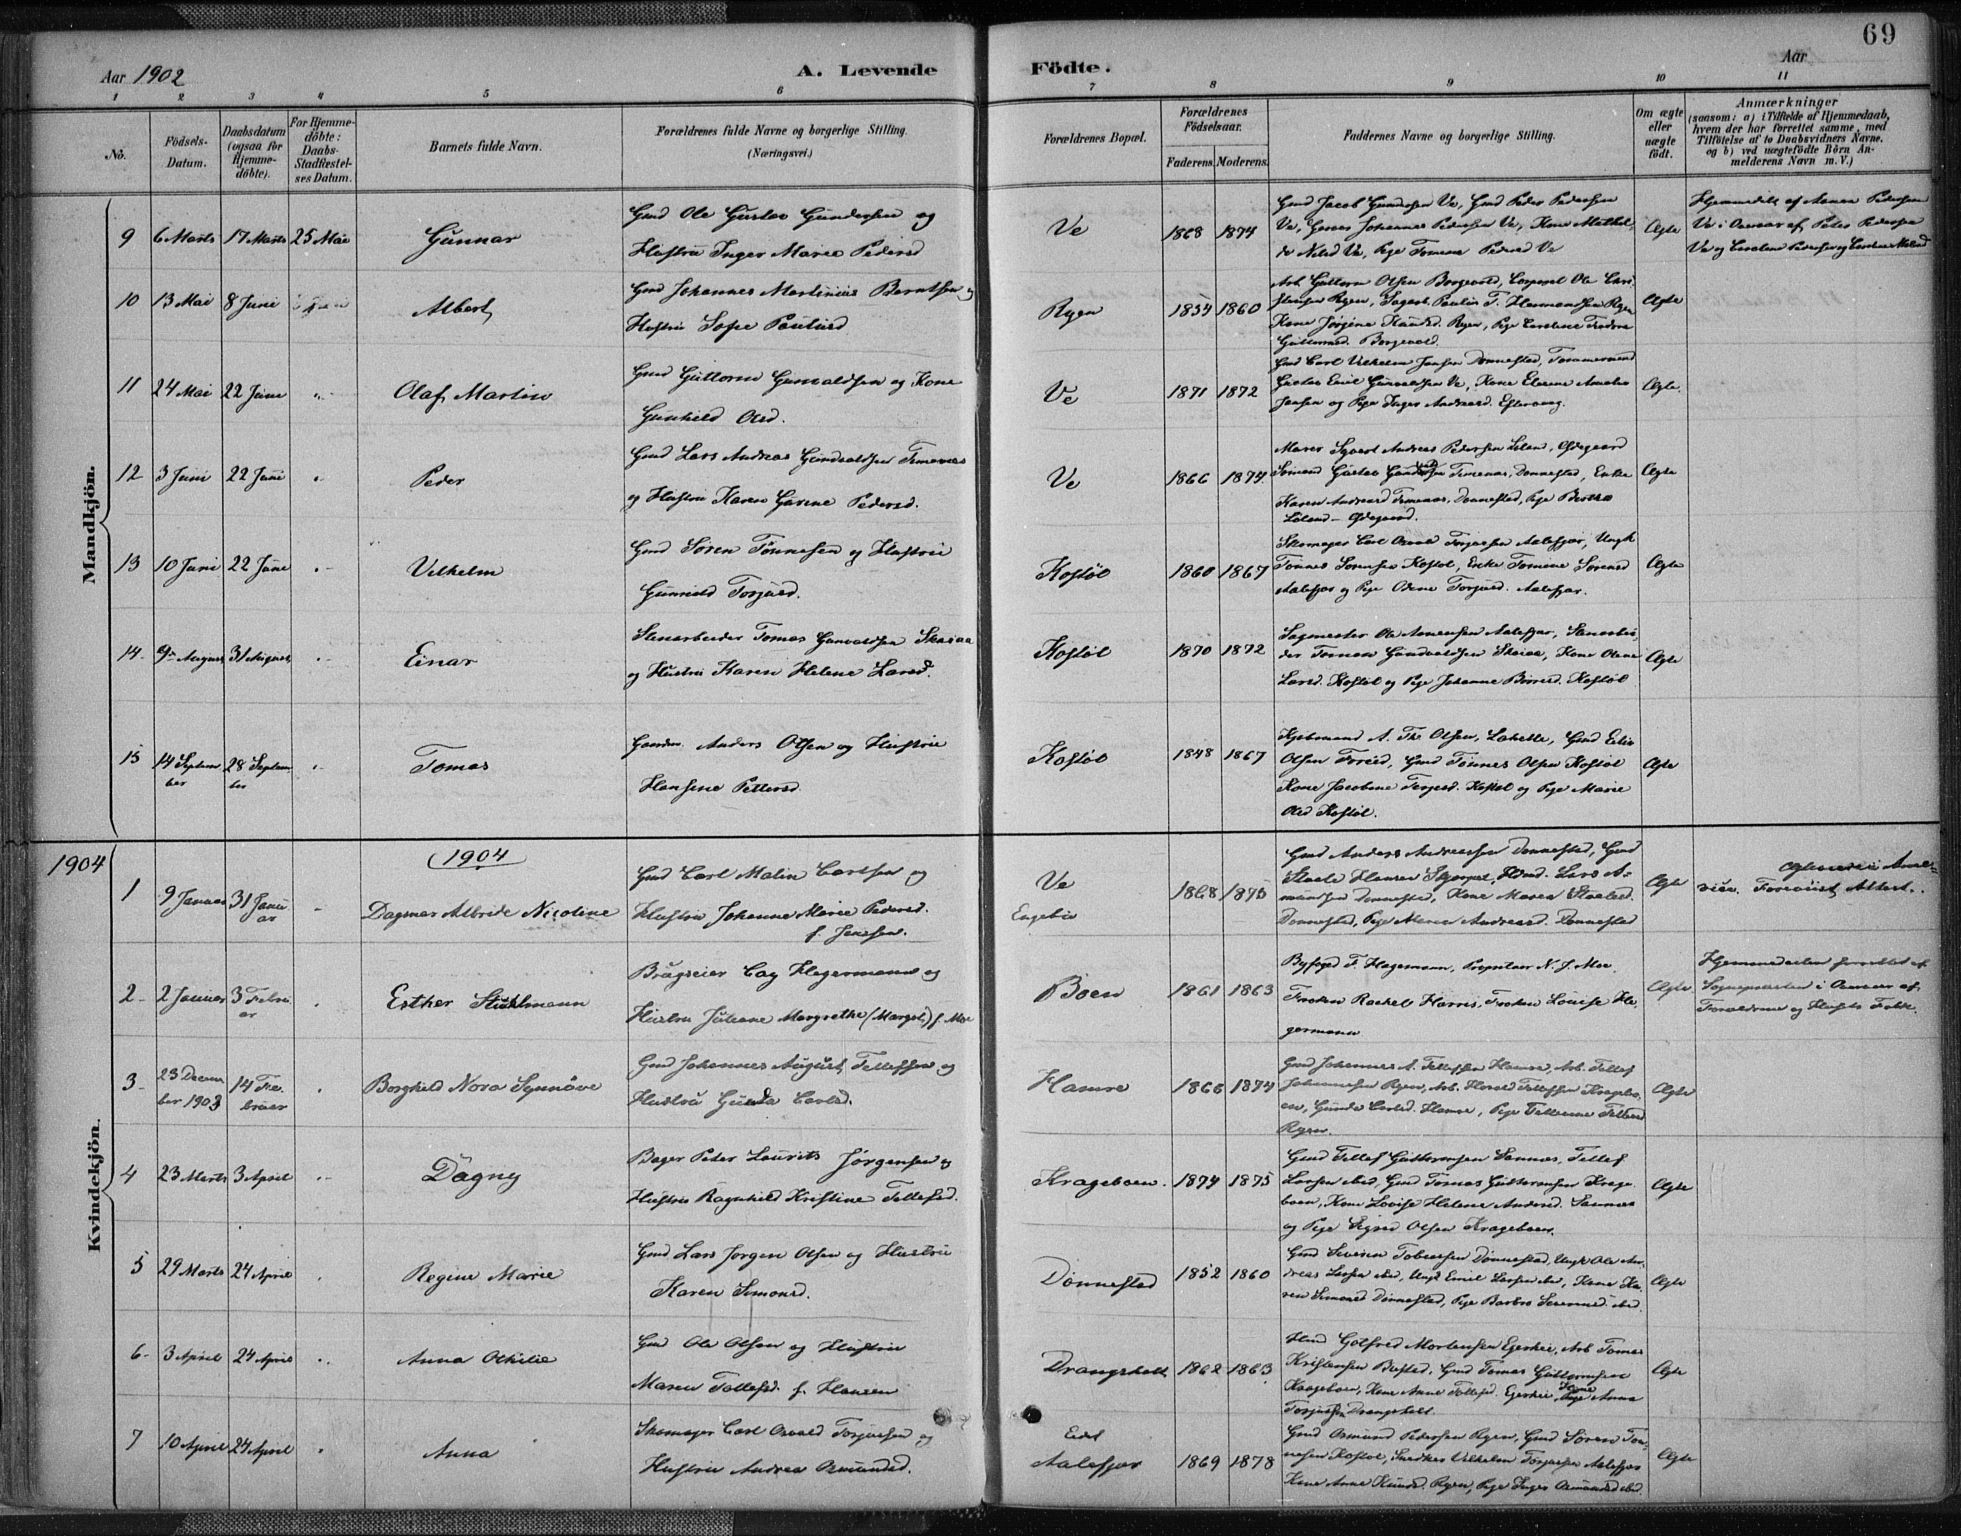 69
Aar 1902
A. Levende
Födte.
Aar
1 2 3 4 5 6 7 8 9 10 11
No.
Födsels-
Datum.
Daabsdatum
(ogsaa for
Hjemme-
döbte).
For Hjemme-
döbte:
Daabs-
Stadfæstel-
ses Datum.
Barnets fulde Navn.
Forældrenes fulde Navne og borgerlige Stilling.
(Næringsvei.)
Forældrenes Bopæl.
Forældrenes
Födselsaar.
Faderens. Moderens.
Faddernes Navne og borgerlige Stilling.
Om ægte
eller
uægte
födt.
Anmærkninger
(saasom: a) i Tilfælde af Hjemmedaab,
hvem der har forrettet samme, med
Tilföielse af to Daabsvidners Navne,
og b) ved uægtefödte Börn An-
melderens Navn m. V.)
Mandkjön.
9 6 Marts 17 Marts 25 Mai
Gunnar
Gmd Ole Gustav Gundersen og
Hustru Inger Marie Pedersd
Ve
1868 1874
Gmd Jacob Gundersen Ve, Gmd Peder Pedersen
Ve, Johannes Pedersen Ve, Kone
Nilsd Ve, Pige Tomine Pedersd Ve
Ægte
Hjemmedøbt af Pedersen
Ve i af Peder Pedersen
Ve og Pedersen og
10 13 Mai 8 Juni
Albert
Gmd Johannes Martinius Berntsen og
Hustru Sofie Paulusd
Ryen
1854 1860
Arb. Guttorm Olsen Borgevold, Corporal Ole Chri-
stensen Ryen, T. Hermandsen Ryen
Kone Jørgine Knudsd. Ryen, Pige
Guttormsd. Borgevold.
Ægte
11 24 Mai 22 Juni "
Olaf Martin
Gmd Guttorm Gunvaldsen og Kone
Gunhild Olsd.
Ve
1871 1872
Gmd Carl Vilhelm Jensen Dønnestad, Tømmermand
Gustav Emil Ve, Kone Amalie
Jensen og Pige Inger Andreasd.
Ægte.
12 3 Juni 22 Juni "
Peder
Gmd Lars Andreas Gundvaldsen Timenes
og Hustru Karen Gurine Pedersd.
Ve
1866 1874
Murer Syvert Andreas Pedersen Leland, Ødegaard
Sømand Gustav Timenes, Dønnestad, Enke
Karen Andreasd Timenes, Dønnestad, Pige Berthe
Leland - Ødegaard.
Ægte
13 10 Juni 22 Juni "
Vilhelm
Gmd Søren Tønnesen og Hustru
Gunnild Torjusd.
Kostøl
1860 1867
Skomager Carl Osvald Torjusen Aalefjær, Ungk
Tønnes Sørensen Kostøl, Enke Tomine Sørensd
Aalefjær og Pige Oline Torjusd. Aalefjær.
Ægte
14 9 August 31 August "
Einar
Stenarbeider Tomas Gunvaldsen Skaiaa
og Hustru Karen Helene Larsd.
Kostøl
1870 1872
Sagmester Ole Aanensen Aalefjær, Stenarbei-
der Tomas Gundvaldsen Skaiaa, Kone Oline
Larsd. Kostøl og Pige Johanne Kostøl
Ægte
15 14 Septem
ber 28 Septem
ber "
Tomas
Gaardm. Anders Olsen og Hustru
Hansine Pettersd
Kostøl
1848 1867
Kjøbmand A. Th. Olsen, Gmd
Olsen Gmd Tønnes Olsen Kostøl
Kone Jacobine Kostøl og Pige Marie
Olsd Kostøl.
Ægte
1904
Kvindekjön.
1904
1 9 Januar 31 Janu
ar
Dagmar Albride Nicoline
Gmd Carl Malin Carlsen og
Hustru Johanne Marie Pedersd.
f. Jensen.
Ve
1868 1875
Gmd Anders Andreassen Dønnestad, Gmd
Staale Hansen Lars A-
mundsen Dønnestad, Kone Maren Staalesd.
Dønnestad, Pige Maren Andreasd. Dønnestad
Ægte
Attest.
2 2 Januar 3 Febru
ar
Esther Stuhlmann
Brugseier Cay Hegermann og
Hustru Juliane Margrethe (Margit) f. Moe
Boen
1861 1863
Byfoged F. Hagemann, Proprietær N. J. Moe
Frøken Rachel Harris, Frøken Louise He-
germann
Ægte
Hjemmedaaben forrettet af
Sognepresten i af
Forældrene og
3 23 Decem
ber 1903 14 Fe-
bruar
Borghild Nora Synnöve
Gmd Johannes August Tellefsen og
Hustru Gunda Carlsd.
Hamre
1866 1874
Gmd Johannes A. Tellefsen Hamre, Arb. Tellef
Johannesen Ryen, Arb. Tellefsen Kragebo-
en, Gunda Carlsd. Hamre, Pige Tellefsd
Ryen.
Ægte
4 23 Marts 3 April
Dagny
Bager Peter Laurits Jørgensen og
Hustru Ragnhild Kristine Tellefsd.
Krageboen.
1874 1875
Gmd Tellef Guttormsen Sannes, Tellef
Larsen ibid, Gmd Tomas Guttormsen Krage-
boen, Kone Lovise Helene Andersd. Sannes
og Pige Sigrid Olsen Krageboen.
Ægte
5 29 Marts 24 April
Regine Marie
Gmd Lars Jørgen Olsen og Hustru
Karen Simonsd.
Dønnestad
1852 1860
Gmd Severin Tobiassen Dønnestad, Ungk Ole An-
dreas Larsen ibid, Ungk Emil Larsen ibid, Kone Ka-
ren Simonsd Dønnestad, Pige Barbro ibid.
Ægte
6 3 April 24 April
Anna Othilie
Gmd Ole Olsen og Hustru
Maren Tollefsd. f. Hansen
Drangsholt
1862 1863
Gotfred Mortensen Egerhei, Arb Tomas
Kristensen Bysted, Gmd Tomas Guttormsen
Krageboen, Kone Anne Tollefsd. Egerhei, Pige Anna
Torjussen Drangsholt.
Ægte
7 10 April 24 April
Anna
Skomager Carl Osvald Torjusen og
Hustru Andrea Osmundsd.
Eidet
Aalefjær
1869 1878
Gmd Osmund Pedersen Ryen, Gmd Søren Tøn-
nesen Kostøl, Snedker Vilhelm Torjusen Aalefjær
Kone Anne Knudsd. Ryen, Pige Inger Osmundsd ibid.
Ægte